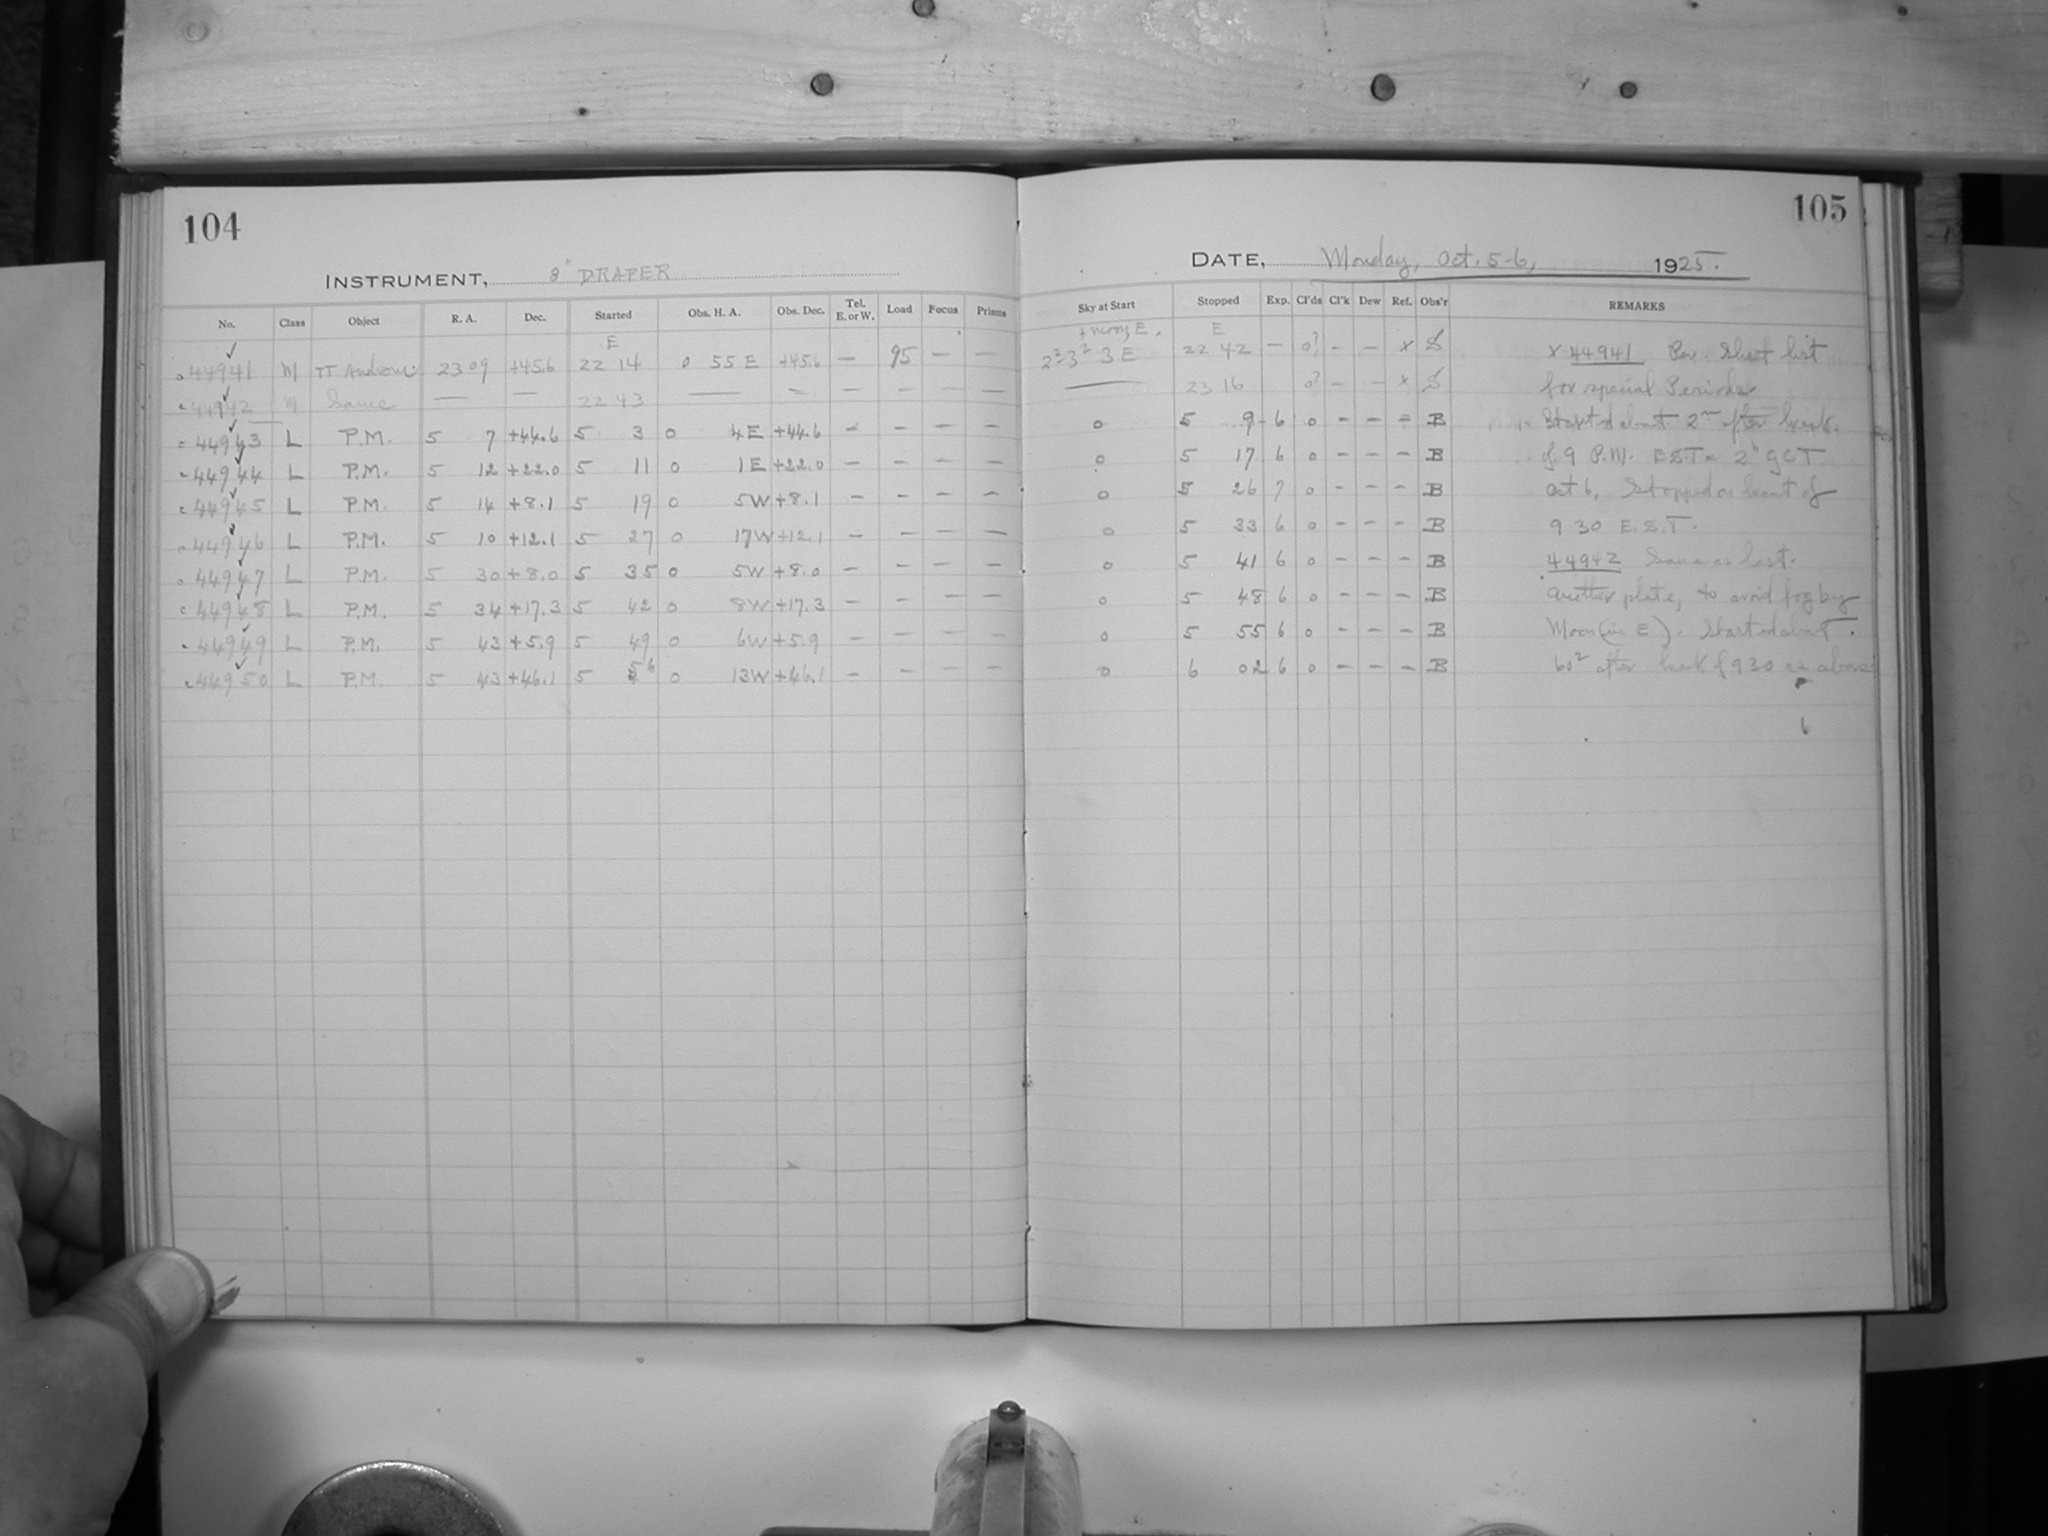 104
INSTRUMENT, 8" DRAPER
No. Class Object R. A. Dec. Started Obs. H. A. Obs. Dec. Tel. E. or W. Load Focus Prisms
E
44941 M TT Androm. 23 09 +45.6 22 14 0 55 E +45.6 — 95 — —
44942 M Same — — 22 43 — — — — — —
44943 L P.M. 5 7 +44.6 5 3 0 4E +44.6 — — — —
44944 L P.M. 5 12 +22.0 5 11 0 1E +22.0 — — — —
44945 L P.M. 5 14 +8.1 5 19 0 5W +8.1 — — — —
44946 L P.M. 5 10 +12.1 5 27 0 17W +12.1 — — — —
44947 L P.M. 5 30 +8.0 5 35 0 5W +8.0 — — — —
44948 L P.M. 5 34 +17.3 5 42 0 8W +17.3 — — — —
44949 L P.M. 5 43 +5.9 5 49 0 6W +5.9 — — — —
44950 L P.M. 5 43 +46.1 5 56 0 13W +46.1 — — — —
105
DATE, Monday, Oct. 5-6, 1925.
Sky at Start Stopped Exp. Cl'ds Cl'k Dew Ref. Obs'r REMARKS
+ moon E. E
2²3² 3E 22 42 — 0? — — x S x 44941 Per. Sheet list
— 23 16 0? — — x S for special Periods.
0 5 9 6 0 — — = B Started about 2ᵐ after break
0 5 17 6 0 — — — B of 9 P.M. E.S.T. = 2ʰ GCT
0 5 26 7 0 — — — B Oct 6, Stopped on beat of
0 5 33 6 0 — — — B 9 30 E.S.T.
0 5 41 6 0 — — — B 44942 Same as last.
0 5 48 6 0 — — — B Another plate, to avoid fog by
0 5 55 6 0 — — — B Moon (in E). Started about
0 6 02 6 0 — — — B 60ˢ after break of 9 30 as above